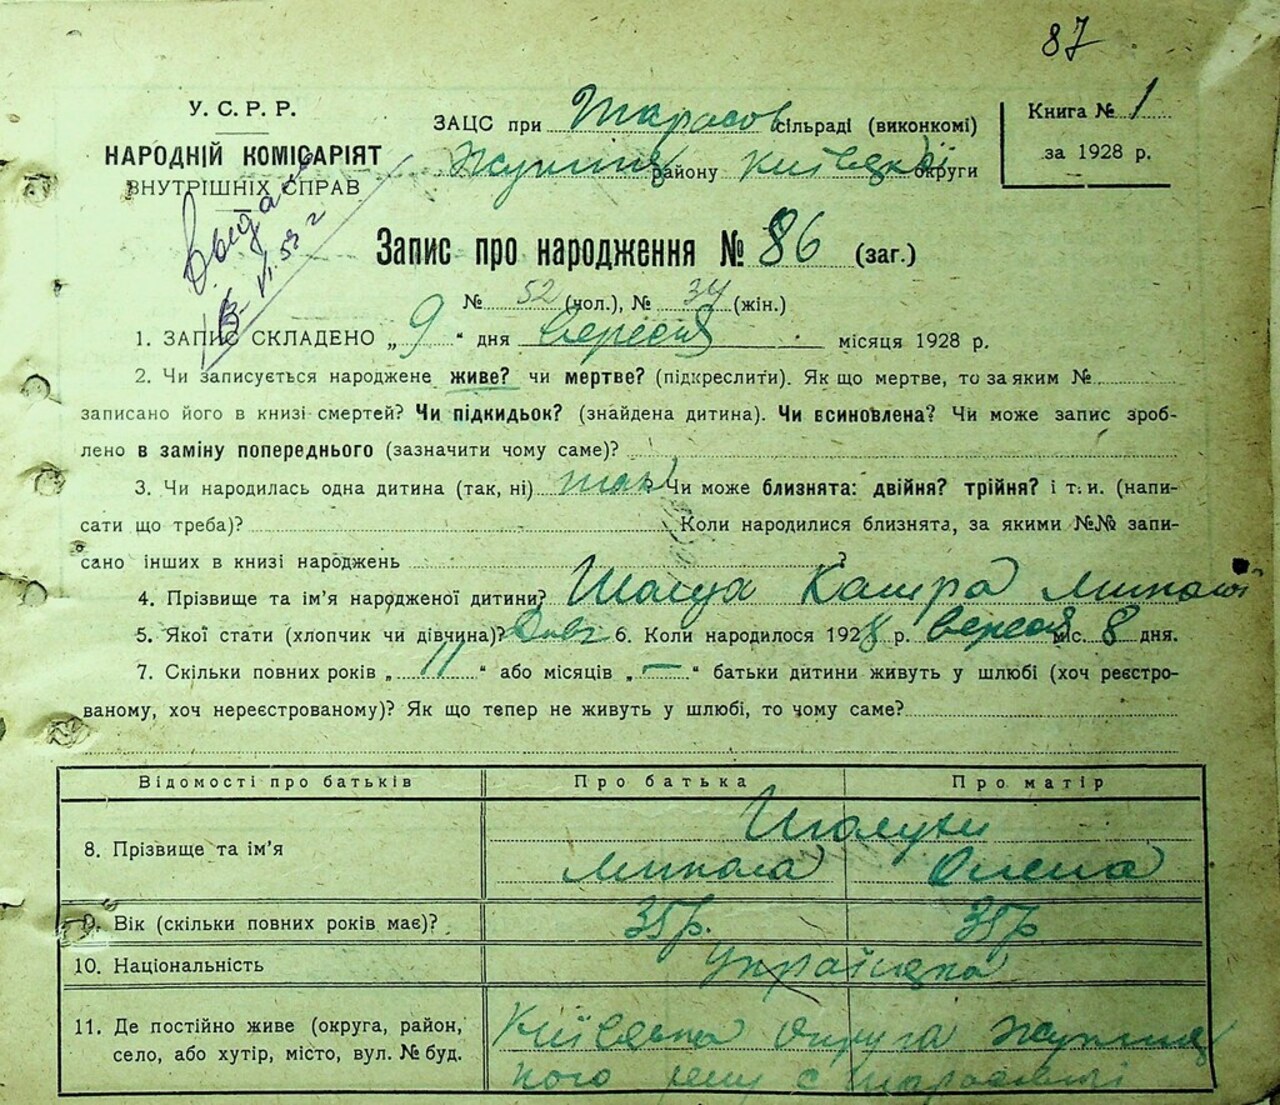 87
У. С. Р. Р.
НАРОДНІЙ КОМІСАРІЯТ
ВНУТРІШНІХ СПРАВ
ЗАЦС при Тарасов сільраді (виконкомі)
району Київської округи
Книга № 1
за 1928 р.
Запис про народження № 86 (заг.)
№ 52 (чол.), № 34 (жін.)
1. ЗАПИС СКЛАДЕНО „ 9 “ дня вересня місяця 1928 р.
2. Чи записується народжене живе? чи мертве? (підкреслити). Як що мертве, то за яким №
записано його в книзі смертей? Чи підкидьок? (знайдена дитина). Чи всиновлена? Чи може запис зроб-
лено в заміну попереднього (зазначити чому саме)?
3. Чи народилась одна дитина (так, ні) так Чи може близнята: двійня? трійня? і т. и. (напи-
сати що треба)? Коли народилися близнята, за якими №№ запи-
сано інших в книзі народжень ?
4. Прізвище та ім’я народженої дитини?
5. Якої стати (хлопчик чи дівчина)? Дивч 6. Коли народилося 1928 р. вересня міс. 8 дня.
7. Скільки повних років „ 11 “ або місяців „ — “ батьки дитини живуть у шлюбі (хоч реєстро-
ваному, хоч нереєстрованому)? Як що тепер не живуть у шлюбі, то чому саме?
Відомості про батьків Про батька Про матір
8. Прізвище та ім’я
Микола Олена
9. Вік (скільки повних років має)? 35р. 35р
10. Національність українська
11. Де постійно живе (округа, район,
село, або хутір, місто, вул. № буд.
Київська округа